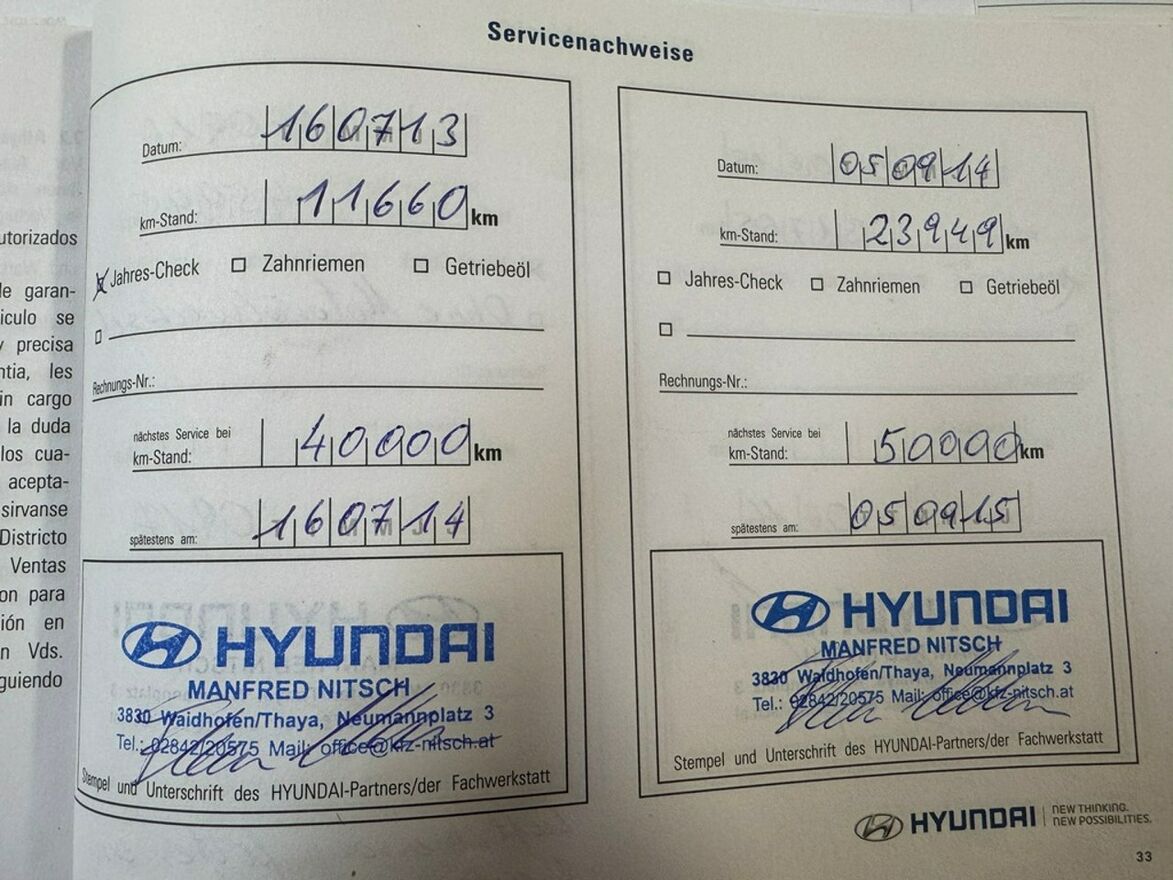 Servicenachweise
Datum: 160713
km-Stand: 11660 km
Jahres-Check Zahnriemen Getriebeöl
Rechnungs-Nr.:
nächstes Service bei
km-Stand: 40000 km
spätestens am: 160714
HYUNDAI
MANFRED NITSCH
3830 Waidhofen/Thaya, Neumannplatz 3
Tel.: 02842/20575 Mail: office@kfz-nitsch.at
Stempel und Unterschrift des HYUNDAI-Partners/der Fachwerkstatt
Datum: 050914
km-Stand: 23949 km
Jahres-Check Zahnriemen Getriebeöl
Rechnungs-Nr.:
nächstes Service bei
km-Stand: 50000 km
spätestens am: 050915
HYUNDAI
MANFRED NITSCH
3830 Waidhofen/Thaya, Neumannplatz 3
Tel.: 02842/20575 Mail: office@kfz-nitsch.at
Stempel und Unterschrift des HYUNDAI-Partners/der Fachwerkstatt
HYUNDAI NEW THINKING.
NEW POSSIBILITIES.
33
utorizados
le garan-
iculo se
y precisa
ntia, les
in cargo
la duda
los cua-
acepta-
sirvanse
Districto
Ventas
on para
ión en
n Vds.
guiendo